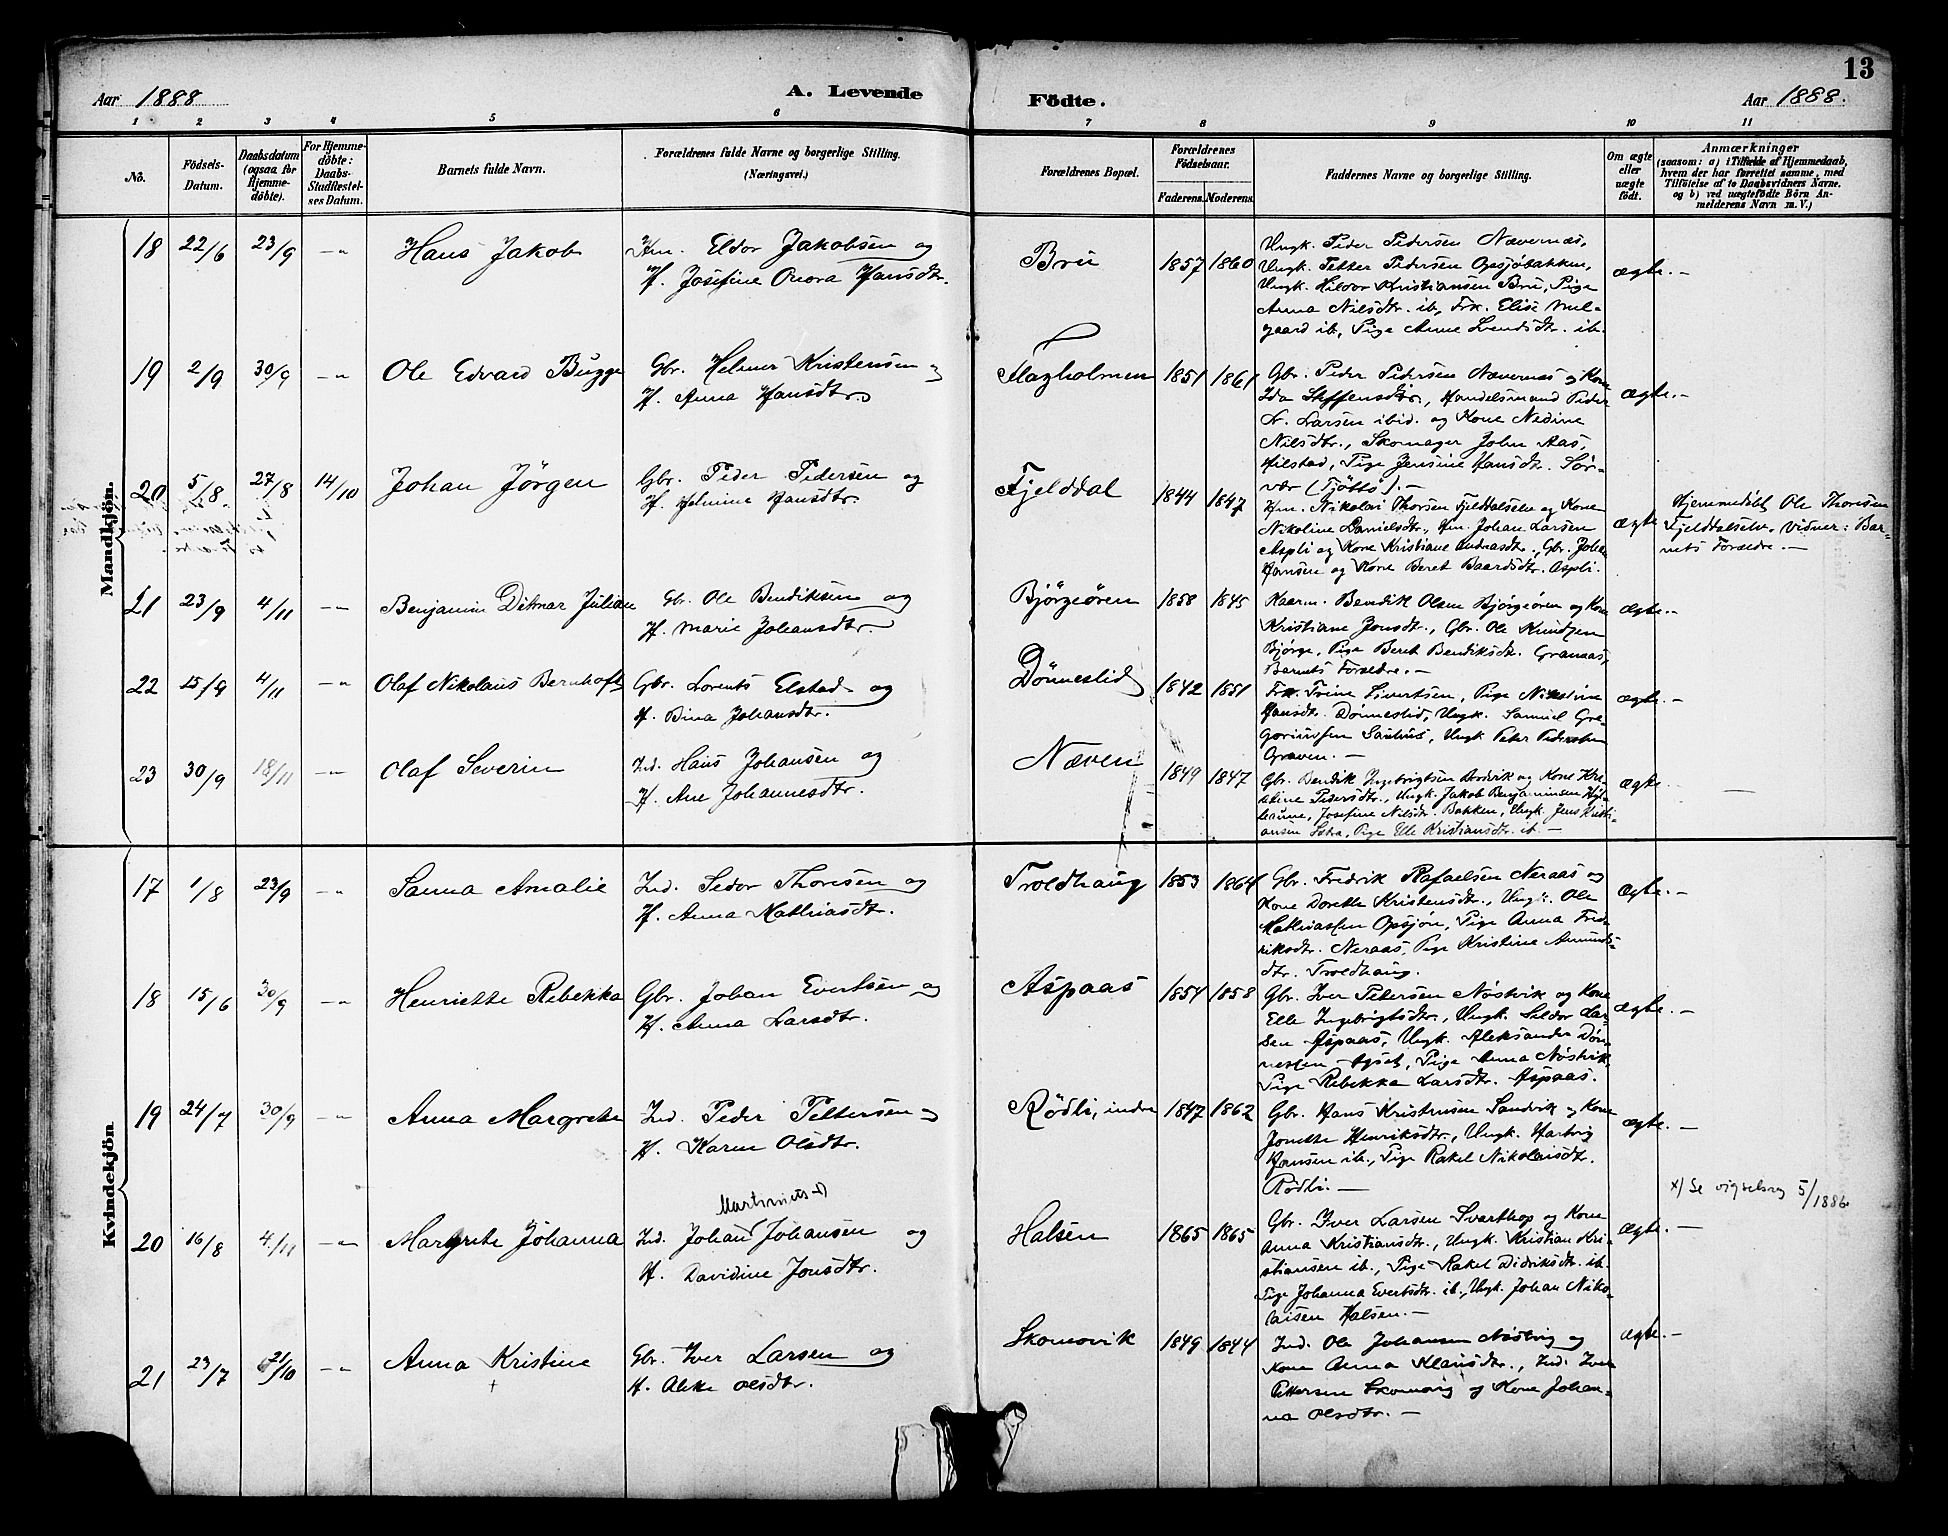 13
Aar 1888
A. Levende
Födte.
Aar 1888.
1 2 3 4 5 6 7 8 9 10 11
No.
Födsels-
Datum.
Daabsdatum
(ogsaa for
Hjemme-
döbte).
For Hjemme-
döbte:
Daabs-
Stadfæstel-
ses Datum.
Barnets fulde Navn.
Forældrenes fulde Navne og borgerlige Stilling.
(Næringsvei.)
Forældrenes Bopæl.
Forældrenes
Födselsaar.
Faderens. Moderens.
Faddernes Navne og borgerlige Stilling.
Om ægte
eller
uægte
födt.
Anmærkninger
(saasom: a) i Tilfælde af Hjemmedaab,
hvem der har forrettet samme, med
Tilföielse af to Daabsvidners Navne.
og b) ved uægtefödte Börn An-
melderens Navn m. V.)
Mandkjön.
18 22/6 23/9 -"- Hans Jakob
Km. Eldor Jakobsen og
H. Josefine Onora Hansdtr.
Bru 1857 1860
Ungk. Peder Pedersen Nævernæs,
Ungk. Petter Pedersen Opsjöbakken,
Ungk. Hildor Kristiansen Bru, Pige
Anna Nilsdtr. ib, Frk. Elise Mul-
gaard ib, Pige Anne Svendsdtr. ib.
ægte. -
19 2/9 30/9 -"- Ole Edvard Bugge
Gbr. Helmer Kristensen og
H. Anna Hansdtr.
Flagholmen 1851 1861
Gbr. Peder Pedersen Nævernæs og Kone
Ida Steffensdtr., Handelsmand Peder
Larsen ibid. og Kone Nedine
Nilsdtr., Skomager John Aas,
Hilstad, Pige Jensine Hansdtr. Sör-
vær (Tjötta). -
ægte. -
20 5/8 27/8 14/10 Johan Jörgen
Gbr. Peder Pedersen og
H. Helmine Hansdtr.
Fjelddal 1844 1847
Hm. Nikolai Thorsen Fjelddalselv og Kone
Nikoline Danielsdtr., Hm. Johan Larsen
Aspli og Kone Kristiane Andreasdtr., Gbr. Johan
Hansen og Kone Beret Baardsdtr. Aspli.
ægte
Hjemmedöbt Ole Thoresen
Fjelddalselv. Vidner: Bar-
nets Forældre. -
21 23/9 4/11 -"- Benjamin Ditmar Julian
Gbr. Ole Bendiksen og
H. Marie Johansdtr.
Bjørgeören 1858 1845
Kaarm. Bendik Olsen Bjørgeören og Kone
Kristiane Jonsdtr., Gbr. Ole Knudsen
Bjørge, Pige Beret Bendiksdtr. Granaas,
Barnets Forældre. -
ægte. -
22 15/9 4/11 -"- Olaf Nikolaus Bernhoft
Gbr. Lorents Elstad og
H. Bina Johansdtr.
Dönneslid 1842 1851
Frk. Trine Sivertsen, Pige Nikoline
Hansdtr. Dönneslid, Ungk. Samuel Gre-
goriussen Sauhus, Ungk Peter Pedersen
Graven. -
ægte. -
23 30/9 18/11 -"- Olaf Severin
Ind. Hans Johansen og
H. Ane Johannesdtr.
Næven 1849 1847
Gbr. Bendik Ingebrigtsen og Kone Kri-
stine Pedersdtr., Ungk. Jakob Benjaminsen
Josefine Nilsdtr. Bakken, Ungk. Jens Kristi-
ansen Pige Elle Kristiansdtr. ib. -
ægte. -
Kvindekjön.
17 1/8 23/9 -"- Sanna Amalie
Ind. Sedor Thoresen og
H. Anna Mathiasdtr.
Troldhaug 1853 1864
Gbr. Fredrik Rafaelsen Neraas og
Kone Dorette Kristensdtr., Ungk. Ole
Mathiassen Opsjön, Pige Anna Fred-
riksdtr. Neraas, Pige Kristine Amunds-
dtr. Troldhaug.
ægte. -
18 15/6 30/9 -"- Henriette Rebekka
Gbr. Johan Evertsen og
H. Anna Larsdtr.
Aspaas 1854 1858
Gbr. Iver Petersen Nöstvik og Kone
Elle Ingebrigtsdtr., Ungk. Seldor Lar-
sen Aspaas, Ungk. Aleksander Dön-
nessen Pige Anna Nöstvik,
Pige Rebekka Larsdtr. Aspaas.
ægte. -
19 24/7 30/9 -"- Anna Margrete
Ind. Peder Pettersen og
H. Karen Olsdtr.
Rödli, indre 1847 1862
Gbr. Hans Kristensen Sandvik og Kone
Jonette Henriksdtr., Ungk. Hartvig
Hansen ib., Pige Rakel Nikolaisdtr.
Rödli. -
ægte. -
x) Se vigselsreg 5/1886
20 16/8 4/11 -"- Margrete Johanna
Martinius x)
Ind. Johan Johansen og
H. Davidine Jonsdtr.
Halsen 1865 1865
Gbr. Iver Larsen Svarthop og Kone
Anna Kristiansdtr., Ungk. Kristian Kri-
stiansen ib., Pige Rakel Didriksdtr. ib.
Pige Johanna Evertsdtr. ib., Ungk. Johan Niko-
laisen Halsen. -
ægte. -
21 23/7 21/10 -"- Anna Kristine
+
Gbr. Iver Larsen og
H. Alette Olsdtr.
Skomovik 1849 1844
Ind. Ole Johansen Nöstvig og
Kone Anna Klausdtr., Ind. Iver
Pettersen Skomovig og Kone Johan-
na Olsdtr. -
ægte. -